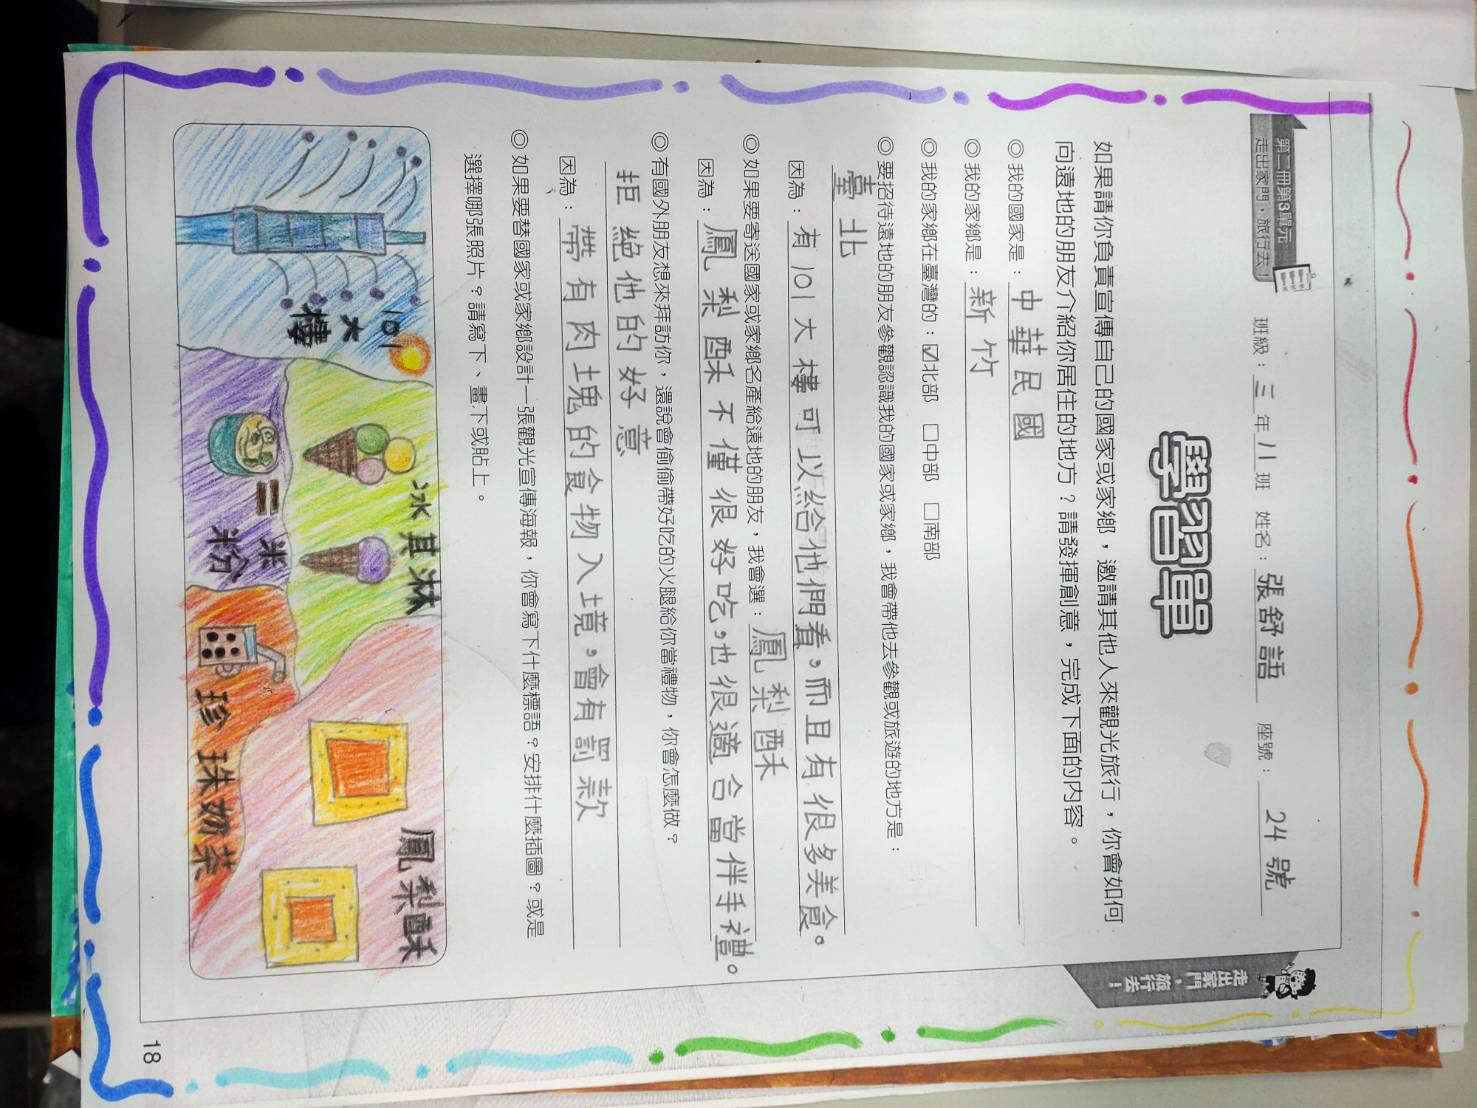 第二冊第3單元
走出家門，旅行去！
班級：三年11班 姓名：張舒語 座號：24號
走出家門，旅行去！
學習單
如果請你負責宣傳自己的國家或家鄉，邀請其他人來觀光旅行，你會如何
向遠地的朋友介紹你居住的地方？請發揮創意，完成下面的內容。
◎我的國家是：中華民國
◎我的家鄉是：新竹
◎我的家鄉在臺灣的：☑北部 □中部 □南部
◎要招待遠地的朋友參觀認識我的國家或家鄉，我會帶他去參觀或旅遊的地方是：
臺北
因為：有101大樓可以給他們看，而且有很多美食。
◎如果要寄送國家或家鄉名產給遠地的朋友，我會選：鳳梨酥
因為：鳳梨酥不僅很好吃，也很適合當伴手禮。
◎有國外朋友想來拜訪你，還說會偷偷帶好吃的火腿給你當禮物，你會怎麼做？
拒絕他的好意
因為：帶有肉塊的食物入境，會有罰款
◎如果要替國家或家鄉設計一張觀光宣傳海報，你會寫下什麼標語？安排什麼插圖？或是
選擇哪張照片？請寫下、畫下或貼上。
101
大樓
冰其淋
米粉
珍珠奶茶
鳳梨酥
18